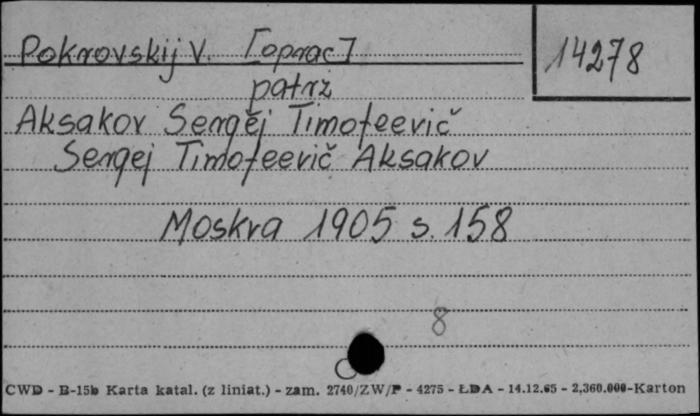 Pokrovskij V. [oprac]
14278
patrz
Aksakov Sergěj Timofeevič
Sergej Timofeevič Aksakov
Moskva 1905 s. 158
8
CWD - B-15b Karta katal. (z liniat.) - zam. 2740/ZW/P - 4275 - ŁDA - 14.12.65 - 2,360.000-Karton